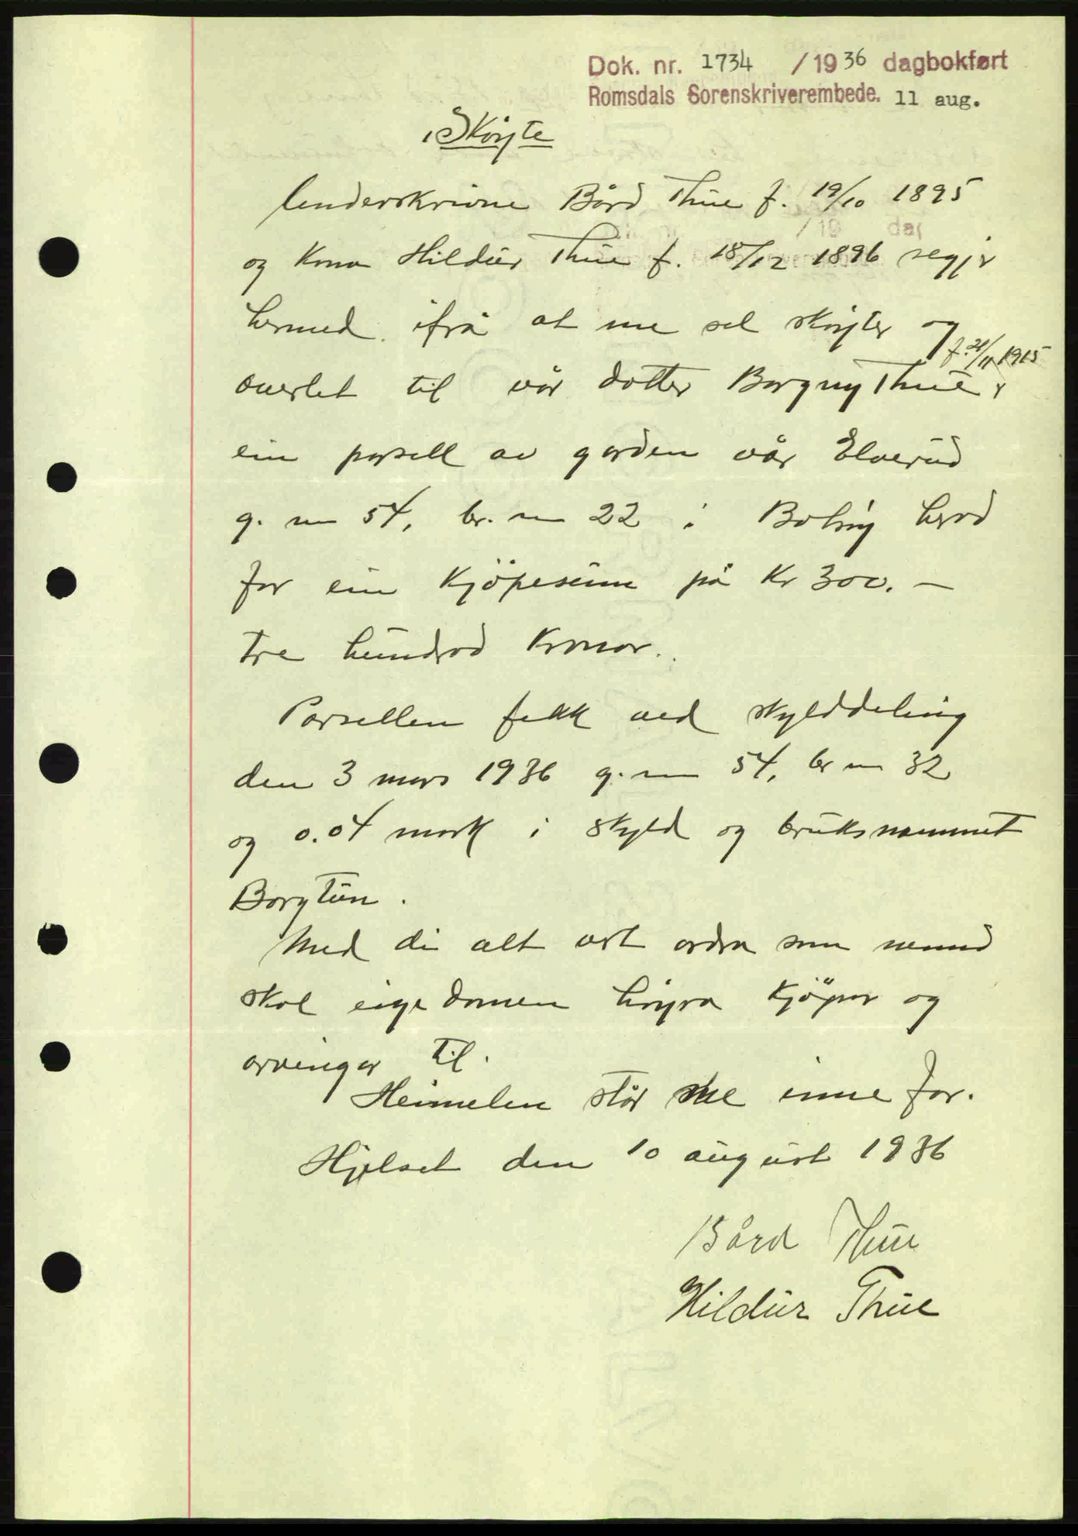 Dok. nr. 1734 / 1936 dagbokført
Romsdals Sorenskriverembede. 11 aug.
Skøyte
Underskrivne Bård Thue f. 19/10 1895
og kona Hildur Thue f. 18/12 1896 segjr
hermed ifrå at me sel skøyter og
f. 21/11 1915
overlet til vår dotter Borgny Thue,
ein parsell av garden vår Elverud
g. nr 54, br. nr 22 i Bolsøy herad
for ein kjøpesum på Kr 300. —
tre hundrad kronor.
Parsellen fekk ved skylddeling
den 3 mars 1936 g. nr 54, br nr 32
og 0.04 mark i skyld og bruksnamnet
Borgtun.
Med di alt art ordra som nemnd
skal eigedomen høyra kjøpar og
arvingar til.
Heimelen står me inne for.
Hjelset den 10 august 1936
Bård Thue
Hildur Thue